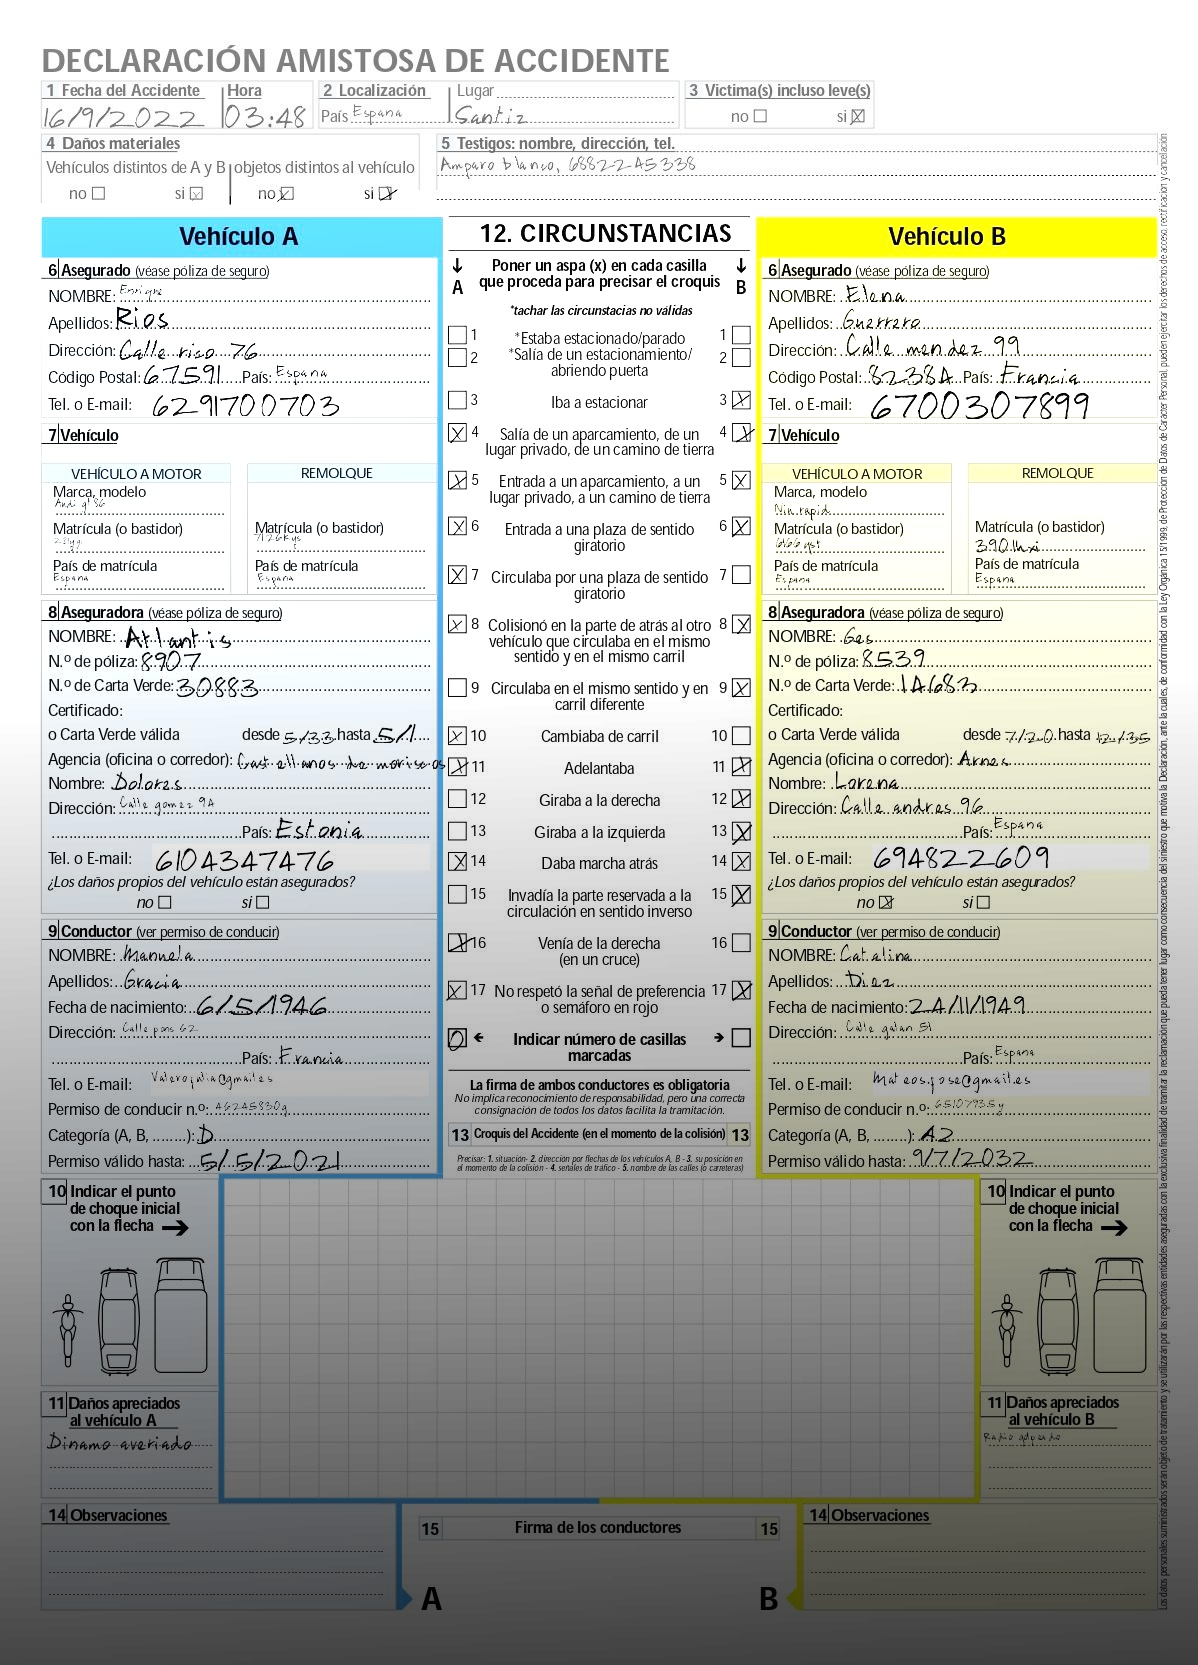 DECLARACIÓN AMISTOSA DE ACCIDENTE
1 Fecha del Accidente Hora 2 Localización Lugar 3 Victima(s) incluso leve(s)
16/9/2022 03:48 País Espana Santiz no si
4 Daños materiales
Vehículos distintos de A y B objetos distintos al vehículo
no si no si
5 Testigos: nombre, dirección, tel.
Amparo blanco, 6882245338
Vehículo A
6 Asegurado (véase póliza de seguro)
NOMBRE: Enrique
Apellidos: Rios
Dirección: Calle rico 76
Código Postal: 67591 País: Espana
Tel. o E-mail: 6291700703
7 Vehículo
VEHÍCULO A MOTOR REMOLQUE
Marca, modelo
Matrícula (o bastidor) Matrícula (o bastidor)
País de matrícula País de matrícula
Espana Espana
8 Aseguradora (véase póliza de seguro)
NOMBRE: Atlantis
N.º de póliza: 8907
N.º de Carta Verde: 30883
Certificado:
o Carta Verde válida desde 5/33 hasta 5/1
Agencia (oficina o corredor): Castellanos de moriscos
Nombre: Dolores
Dirección: Calle gomez 9A
País: Estonia
Tel. o E-mail: 6104347476
¿Los daños propios del vehículo están asegurados?
no si
9 Conductor (ver permiso de conducir)
NOMBRE: Manuela
Apellidos: Gracia
Fecha de nacimiento: 6/5/1946
Dirección: Calle pons 62
País: Francia
Tel. o E-mail: Valerojulia@gmail.es
Permiso de conducir n.º: 46245830g
Categoría (A, B, ........): D
Permiso válido hasta: 5/5/2021
12. CIRCUNSTANCIAS
Poner un aspa (x) en cada casilla
que proceda para precisar el croquis
A B
*tachar las circunstacias no válidas
1 *Estaba estacionado/parado 1
2 *Salía de un estacionamiento/ 2
abriendo puerta
3 Iba a estacionar 3
4 Salía de un aparcamiento, de un 4
lugar privado, de un camino de tierra
5 Entrada a un aparcamiento, a un 5
lugar privado, a un camino de tierra
6 Entrada a una plaza de sentido 6
giratorio
7 Circulaba por una plaza de sentido 7
giratorio
8 Colisionó en la parte de atrás al otro 8
vehículo que circulaba en el mismo
sentido y en el mismo carril
9 Circulaba en el mismo sentido y en 9
carril diferente
10 Cambiaba de carril 10
11 Adelantaba 11
12 Giraba a la derecha 12
13 Giraba a la izquierda 13
14 Daba marcha atrás 14
15 Invadía la parte reservada a la 15
circulación en sentido inverso
16 Venía de la derecha 16
(en un cruce)
17 No respetó la señal de preferencia 17
o semáforo en rojo
0 Indicar número de casillas
marcadas
La firma de ambos conductores es obligatoria
No implica reconocimiento de responsabilidad, pero una correcta
consignación de todos los datos facilita la tramitación.
13 Croquis del Accidente (en el momento de la colisión) 13
Precisar: 1. situación- 2. dirección por flechas de los vehículos A, B - 3. su posición en
el momento de la colisión - 4. señales de tráfico - 5. nombre de las calles (o carreteras)
Vehículo B
6 Asegurado (véase póliza de seguro)
NOMBRE: Elena
Apellidos: Guerrero
Dirección: Calle mendez 99
Código Postal: 8238A País: Francia
Tel. o E-mail: 6700307899
7 Vehículo
VEHÍCULO A MOTOR REMOLQUE
Marca, modelo
Matrícula (o bastidor) Matrícula (o bastidor)
País de matrícula País de matrícula
Espana Espana
8 Aseguradora (véase póliza de seguro)
NOMBRE: Ges
N.º de póliza: 8539
N.º de Carta Verde: 1A683
Certificado:
o Carta Verde válida desde 7/20 hasta 12/35
Agencia (oficina o corredor): Arnes
Nombre: Lorena
Dirección: Calle andres 96
País: Espana
Tel. o E-mail: 694822609
¿Los daños propios del vehículo están asegurados?
no si
9 Conductor (ver permiso de conducir)
NOMBRE: Catalina
Apellidos: Diez
Fecha de nacimiento: 24/11/1949
Dirección: Calle galan 51
País: Espana
Tel. o E-mail: Mateosjose@gmail.es
Permiso de conducir n.º: 6510793.5y
Categoría (A, B, ........): A2
Permiso válido hasta: 9/7/2032
10 Indicar el punto
de choque inicial
con la flecha
11 Daños apreciados
al vehículo A
Dinamo averiado
10 Indicar el punto
de choque inicial
con la flecha
11 Daños apreciados
al vehículo B
Radio golpeado
14 Observaciones
15 Firma de los conductores 15
A B
14 Observaciones